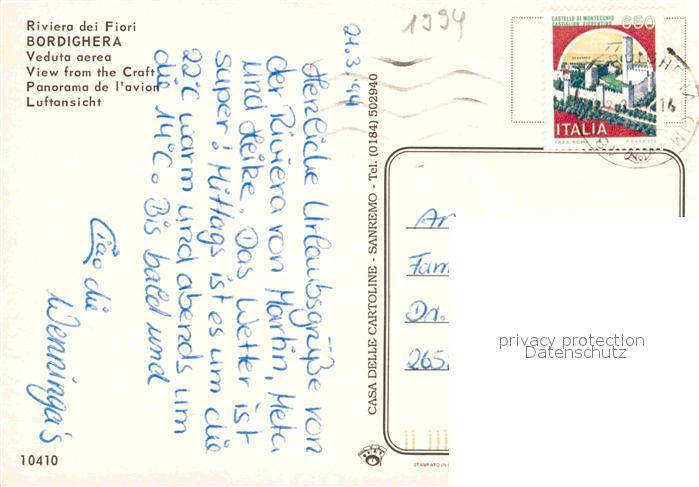 Riviera dei Fiori
BORDIGHERA
Veduta aerea
View from the Craft
Panorama de l'avion
Luftansicht
1994
24.3.'94
Herzliche Urlaubsgrüße von
der Riviera von Martin, Meta
und Heike. Das Wetter ist
super! Mittags ist es um die
22°C warm und abends um
die 14°C. Bis bald und
Ciao die
Wenninga's
10410
CASA DELLE CARTOLINE - SANREMO - Tel. (0184) 502940
CASTELLO DI MONTECCHIO
CASTIGLION FIORENTINO
650
ITALIA
An
Fam
Dr.
265
privacy protection
Datenschutz
STAMPATO IN